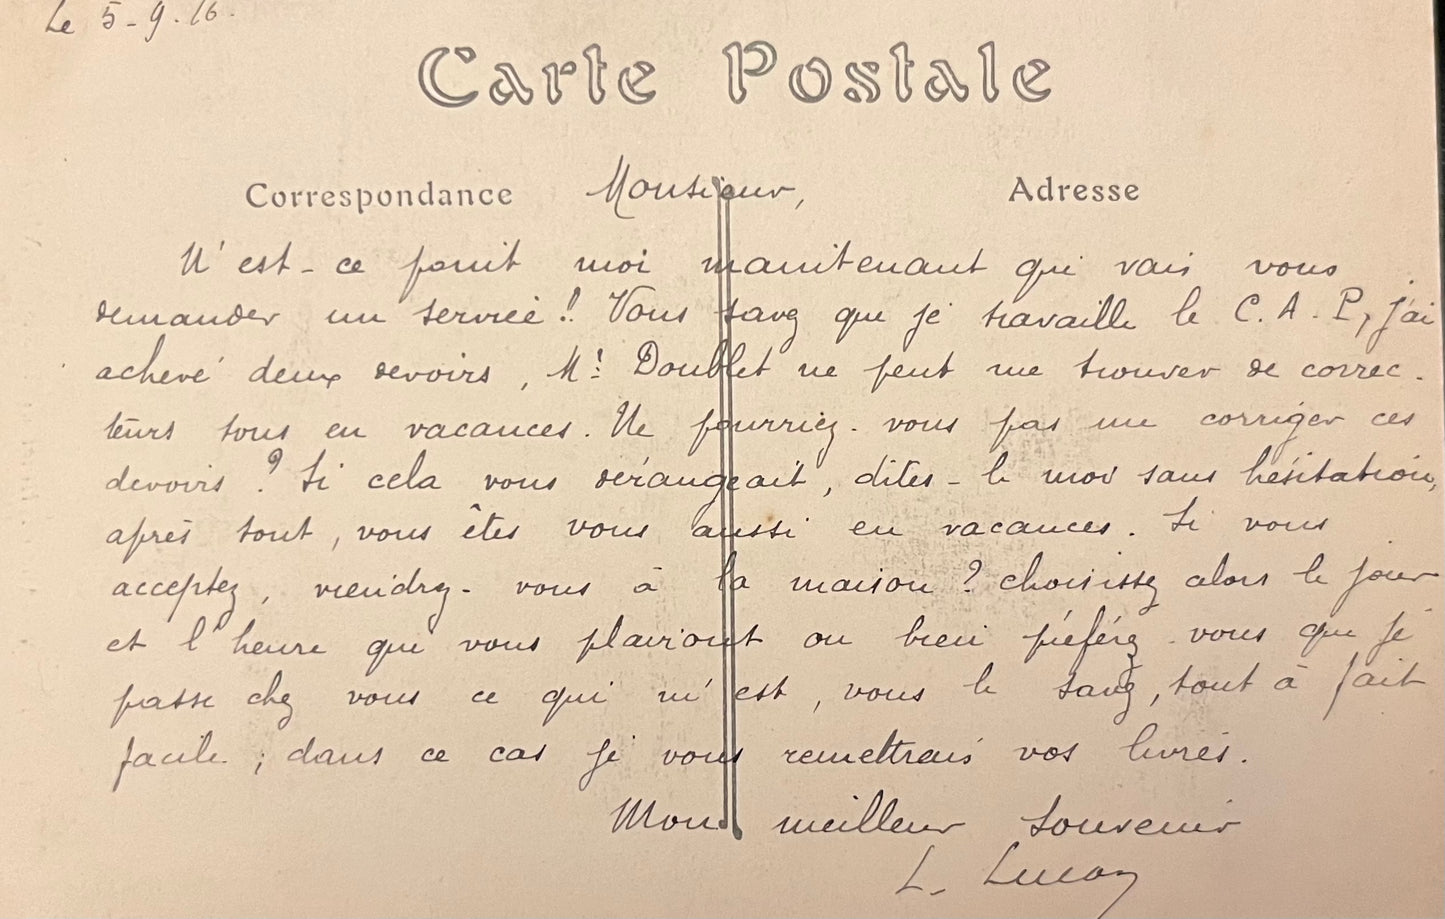 Le 5-9.16.
Carte Postale
Correspondance Monsieur, Adresse
N'est-ce point moi maintenant qui vais vous
demander un service!! Vous savez que je travaille le C.A.P, j'ai
achevé deux devoirs, Mr. Doublet ne peut me trouver de correc-
teurs tous en vacances. Ne pourriez-vous pas me corriger ces
devoirs? Si cela vous dérangeait, dites-le moi sans hésitation,
après tout, vous êtes vous aussi en vacances. Si vous
acceptez, viendrez-vous à la maison? choisissez alors le jour
et l'heure qui vous plairont ou bien préférez-vous que je
passe chez vous ce qui m'est, vous le savez, tout à fait
facile; dans ce cas je vous remettrais vos livres.
Mon meilleur souvenir
L.